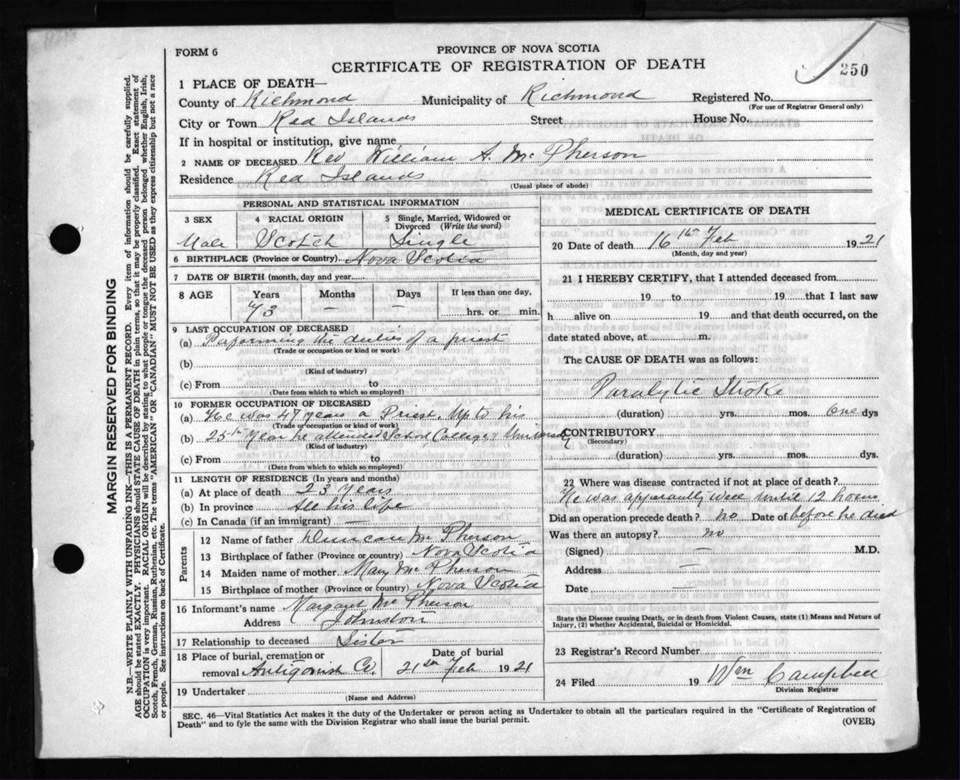 FORM 6
PROVINCE OF NOVA SCOTIA
CERTIFICATE OF REGISTRATION OF DEATH
250
1 PLACE OF DEATH—
County of Richmond Municipality of Richmond Registered No.
(For use of Registrar General only)
City or Town Red Islands Street House No.
If in hospital or institution, give name
2 NAME OF DECEASED Rev William A. McPherson
Residence Red Islands
(Usual place of abode)
PERSONAL AND STATISTICAL INFORMATION
3 SEX 4 RACIAL ORIGIN 5 Single, Married, Widowed or Divorced (Write the word)
Male Scotch Single
6 BIRTHPLACE (Province or Country) Nova Scotia
7 DATE OF BIRTH (month, day and year)
8 AGE Years Months Days If less than one day,
73 — — hrs. or min.
9 LAST OCCUPATION OF DECEASED
(a) Performing the duties of a priest
(Trade or occupation or kind or work)
(b)
(Kind of industry)
(c) From to
(Date from which to which so employed)
10 FORMER OCCUPATION OF DECEASED
(a) He was 47 years a Priest. Up to his
(Trade or occupation or kind of work)
(b) 25th Year he attended School College & University
(Kind of industry)
(c) From to
(Date from which to which so employed)
11 LENGTH OF RESIDENCE (In years and months)
(a) At place of death 23 years
(b) In province All his life
(c) In Canada (if an immigrant) —
Parents
12 Name of father Duncan McPherson
13 Birthplace of father (Province or Country) Nova Scotia
14 Maiden name of mother Mary McPherson
15 Birthplace of mother (Province or country) Nova Scotia
16 Informant's name Margaret McPherson
Address Johnston
17 Relationship to deceased Sister
18 Place of burial, cremation or removal Antigonish Co. Date of burial 21st Feb 1921
19 Undertaker
(Name and Address)
MEDICAL CERTIFICATE OF DEATH
20 Date of death 16th Feb 1921
(Month, day and year)
21 I HEREBY CERTIFY, that I attended deceased from
19 to 19 that I last saw
h alive on 19 and that death occurred, on the
date stated above, at m.
The CAUSE OF DEATH was as follows:
Paralytic Stroke
(duration) yrs. mos. One dys
CONTRIBUTORY
(Secondary)
(duration) yrs. mos. dys.
22 Where was disease contracted if not at place of death?
He was apparently well until 12 hours
Did an operation precede death? no Date of before he died
Was there an autopsy? no
(Signed) — M.D.
Address —
Date
State the Disease causing Death, or in death from Violent Causes, state (1) Means and Nature of Injury, (2) whether Accidental, Suicidal or Homicidal.
23 Registrar's Record Number
24 Filed 19 Wm Campbell
Division Registrar
SEC. 46—Vital Statistics Act makes it the duty of the Undertaker or person acting as Undertaker to obtain all the particulars required in the "Certificate of Registration of
Death" and to fyle the same with the Division Registrar who shall issue the burial permit.
(OVER)
MARGIN RESERVED FOR BINDING
N.B.—WRITE PLAINLY WITH UNFADING INK—THIS IS A PERMANENT RECORD. Every item of information should be carefully supplied.
AGE should be stated EXACTLY. PHYSICIANS should STATE CAUSE OF DEATH in plain terms, so that it may be properly classified. Exact statement of
OCCUPATION is very important. RACIAL ORIGIN will be described by stating to what people or tongue the deceased person belonged whether English, Irish,
Scotch, French, German, Russian, Ruthenian, etc. The terms "AMERICAN" or "CANADIAN" MUST NOT BE USED as they express citizenship but not a race
or people. See instructions on back of Certificate.